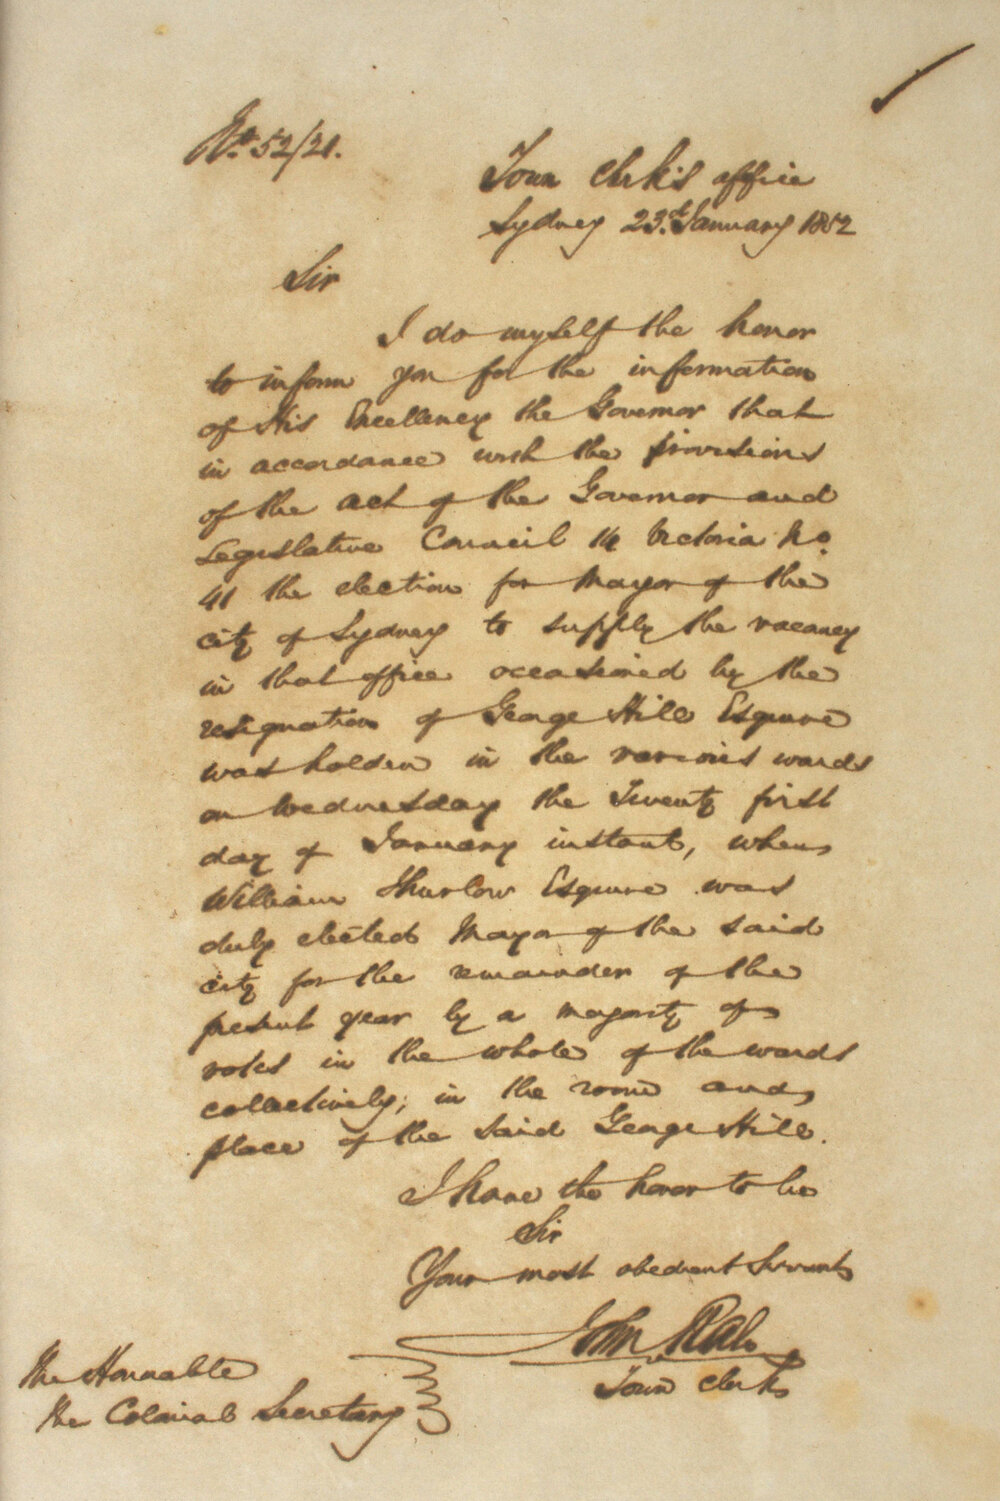 No. 52/21.
Town Clerk's office
Sydney 23d. January 1852
Sir
I do myself the honor
to inform you for the information
of His Excellency the Governor that
in accordance with the provisions
of the act of the Governor and
Legislative Council 14 Victoria No.
41 the election for Mayor of the
city of Sydney to supply the vacancy
in that office occasioned by the
resignation of George Hill Esquire
was holden in the various wards
on Wednesday the Twenty first
day of January instant, when
William Thurlow Esquire was
duly elected Mayor of the said
city for the remainder of the
present year by a majority of
votes in the whole of the wards
collectively; in the room and
place of the said George Hill.
I have the honor to be
Sir
Your most obedient Servant
John Rae
Town Clerk
The Honorable
the Colonial Secretary